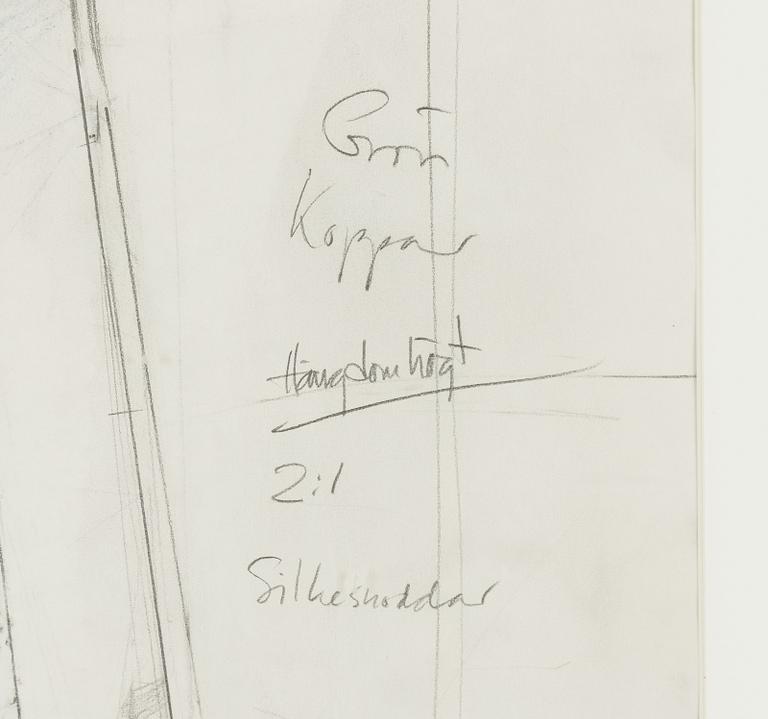 Grön
Koppar
Hängdom högt
2:1
Silkesnoddar